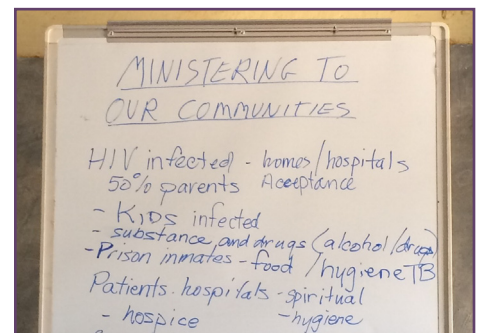 MINISTERING TO
OUR COMMUNITIES
HIV infected - homes/hospitals
50% parents Acceptance
- KIDS infected
- substance and drugs (alcohol/drugs)
- Prison inmates - food / hygiene TB
Patients. hospitals - spiritual
- hospice - hygiene